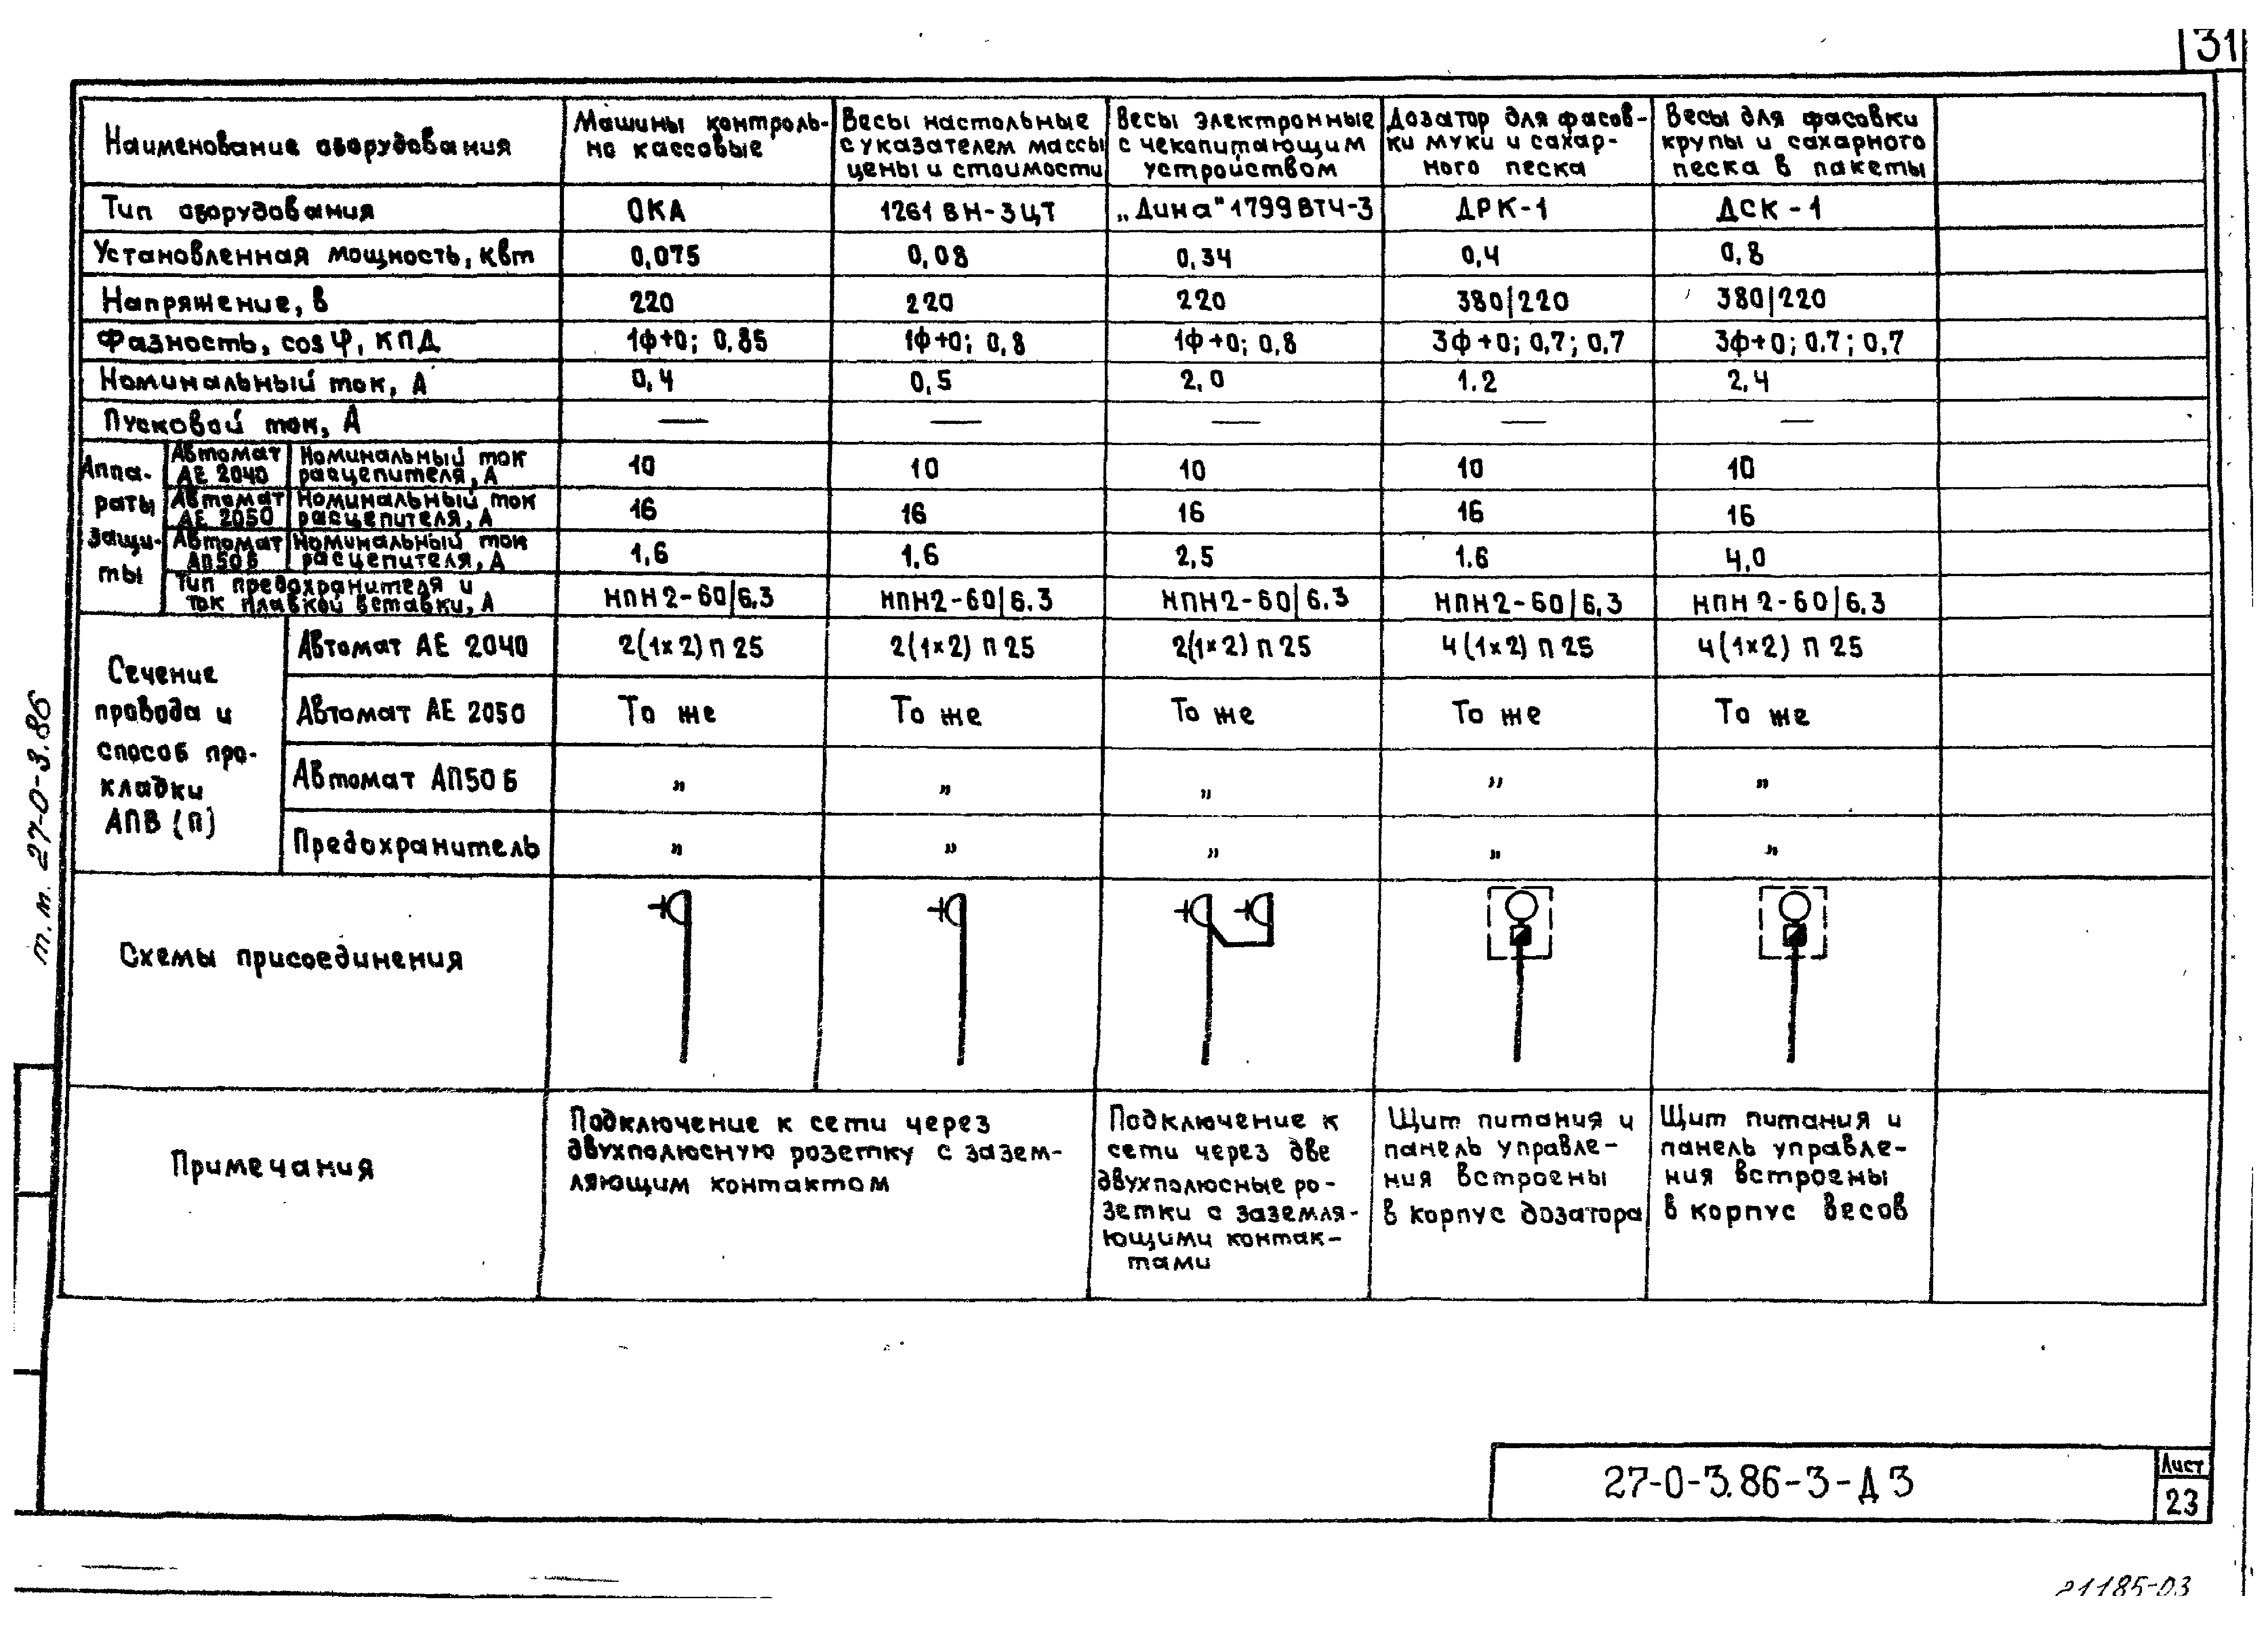 31
Наименование оборудования
Машины контроль-
но кассовые
Весы настольные
с указателем массы
цены и стоимости
Весы электронные
с чекопитающим
устройством
Дозатор для фасов-
ки муки и сахар-
ного песка
Весы для фасовки
крупы и сахарного
песка в пакеты
Тип оборудования ОКА 1261 ВН-3ЦТ „Дина" 1799ВТЧ-3 ДРК-1 ДСК-1
Установленная мощность, квт 0,075 0,08 0,34 0,4 0,8
Напряжение, в 220 220 220 380/220 380/220
Фазность, cos φ, КПД 1ф+0; 0.85 1ф+0; 0,8 1ф+0; 0,8 3ф+0; 0,7; 0,7 3ф+0; 0.7; 0,7
Номинальный ток, А 0,4 0,5 2,0 1.2 2,4
Пусковой ток, А — — — — —
Аппа-
раты
защи-
ты
Автомат
АЕ 2040
Номинальный ток
расцепителя, А
10 10 10 10 10
Автомат
АЕ 2050
Номинальный ток
расцепителя, А
16 16 16 16 16
Автомат
АП50Б
Номинальный ток
расцепителя, А
1,6 1,6 2,5 1.6 4,0
Тип предохранителя и
ток плавкой вставки, А
НПН2-60/6.3 НПН2-60/6.3 НПН2-60/6.3 НПН2-60/6.3 НПН2-60/6.3
Сечение
провода и
способ про-
кладки
АПВ (П)
Автомат АЕ 2040 2(1×2) П 25 2(1×2) П 25 2(1×2) П 25 4(1×2) П 25 4(1×2) П 25
Автомат АЕ 2050 То же То же То же То же То же
Автомат АП50Б „ „ „ „ „
Предохранитель „ „ „ „ „
Схемы присоединения
Примечания
Подключение к сети через
двухполюсную розетку с зазем-
ляющим контактом
Подключение к
сети через две
двухполюсные ро-
зетки с заземля-
ющими контак-
тами
Щит питания и
панель управле-
ния встроены
в корпус дозатора
Щит питания и
панель управле-
ния встроены
в корпус весов
т. м. 27-0-3.86
27-0-3.86-3-Д3
Лист
23
21185-03